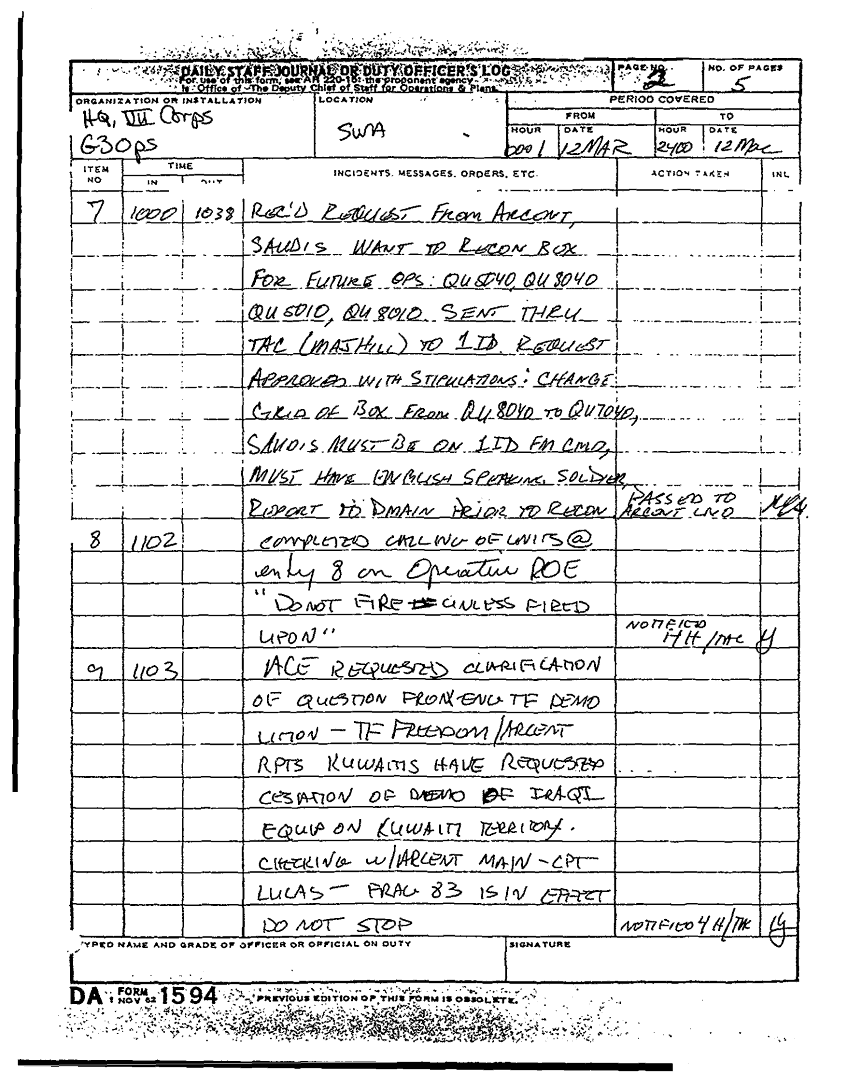 DAILY STAFF JOURNAL OR DUTY OFFICER'S LOG
For use of this form, see AR 220-15; the proponent agency
is Office of The Deputy Chief of Staff for Operations & Plans.
PAGE NO.
2
NO. OF PAGES
5
ORGANIZATION OR INSTALLATION
HQ, VII Corps
G3 Ops
LOCATION
SWA
PERIOD COVERED
FROM
TO
HOUR
DATE
HOUR
DATE
0001
12 MAR
2400
12 Mar
ITEM NO
TIME
IN
OUT
INCIDENTS, MESSAGES, ORDERS, ETC.
ACTION TAKEN
INL
7 1000 1038 REC'D REQUEST FROM ARCENT,
SAUDIS WANT TO RECON BOX
FOR FUTURE OPS: QU5040, QU8040
QU5010, QU8010. SENT THRU
TAC (MAJ HILL) TO 1ID. REQUEST
APPROVED WITH STIPULATIONS: CHANGE
GRID OF BOX FROM QU8040 TO QU7040,
SAUDIS MUST BE ON 1ID FM CMD,
MUST HAVE ENGLISH SPEAKING SOLDIER,
REPORT TO DMAIN PRIOR TO RECON PASSED TO
ARCENT LNO
8 1102 COMPLETED CALLING OF UNITS @
entry 8 on Operative ROE
"DO NOT FIRE UNLESS FIRED
UPON" NOTIFIED
HH/TAC
9 1103 ACE REQUESTED CLARIFICATION
OF QUESTION FROM ENG TF DEMO
LITION - TF FREEDOM/ARCENT
RPTS KUWAITIS HAVE REQUESTED
CESATION OF DEMO OF IRAQI
EQUIP ON KUWAITI TERRITORY.
CHECKING W/ARCENT MAIN - CPT
LUCAS - FRAG 83 IS IN EFFECT
DO NOT STOP NOTIFIED 4H/TAC
TYPED NAME AND GRADE OF OFFICER OR OFFICIAL ON DUTY
SIGNATURE
DA FORM 1 NOV 62 1594
PREVIOUS EDITION OF THIS FORM IS OBSOLETE.